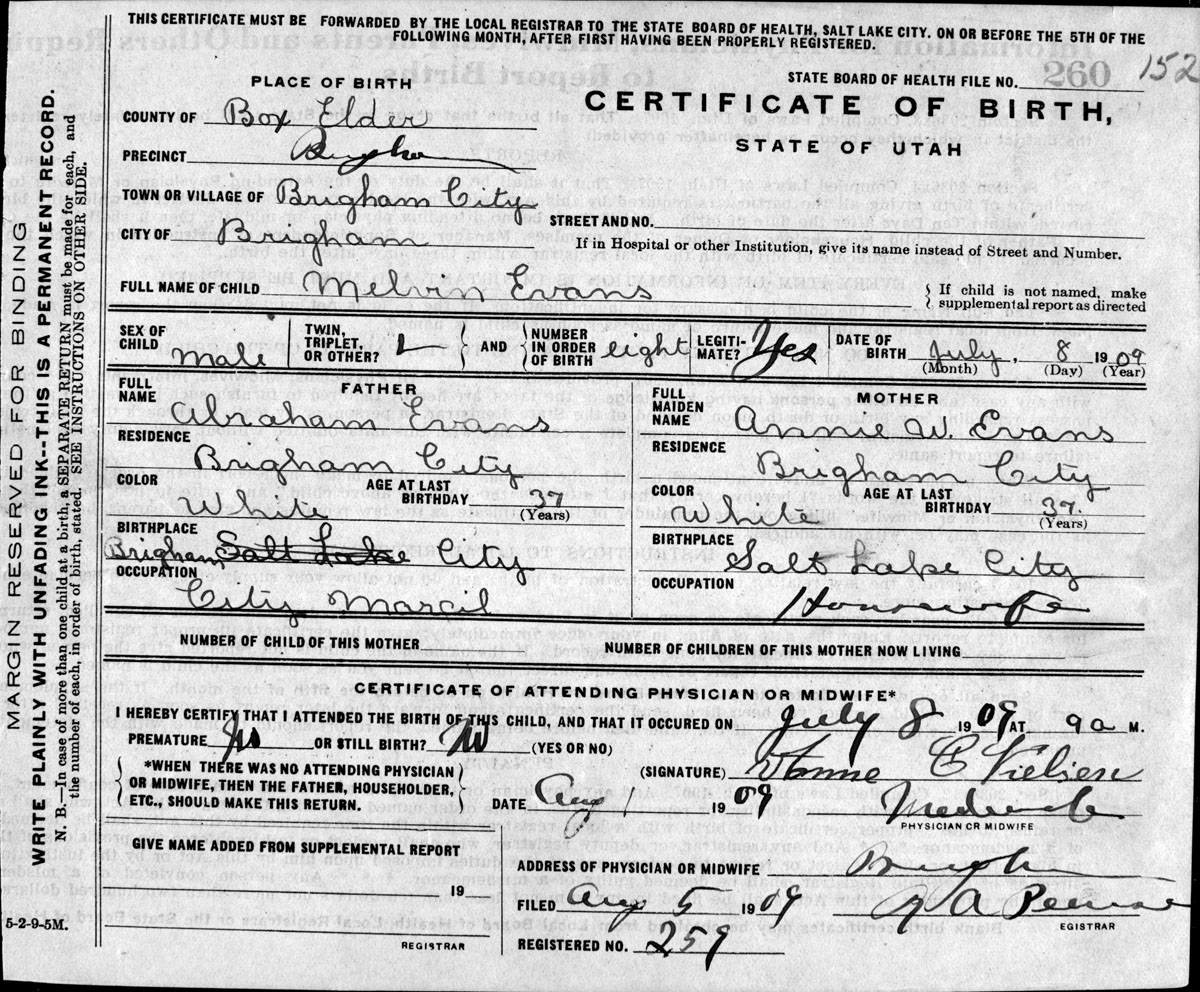 THIS CERTIFICATE MUST BE FORWARDED BY THE LOCAL REGISTRAR TO THE STATE BOARD OF HEALTH, SALT LAKE CITY. ON OR BEFORE THE 5TH OF THE
FOLLOWING MONTH, AFTER FIRST HAVING BEEN PROPERLY REGISTERED.
MARGIN RESEVED FOR BINDING
WRITE PLAINLY WITH UNFADING INK--THIS IS A PERMANENT RECORD.
N. B.—In case of more than one child at a birth, a SEPARATE RETURN must be made for each, and
the number of each, in order of birth, stated. SEE INSTRUCTIONS ON OTHER SIDE.
PLACE OF BIRTH
STATE BOARD OF HEALTH FILE NO. 260 152
COUNTY OF Box Elder
CERTIFICATE OF BIRTH,
PRECINCT Brigham
STATE OF UTAH
TOWN OR VILLAGE OF Brigham City
STREET AND NO.
CITY OF Brigham
If in Hospital or other Institution, give its name instead of Street and Number.
FULL NAME OF CHILD Melvin Evans
If child is not named, make
supplemental report as directed
SEX OF CHILD Male
TWIN, TRIPLET, OR OTHER? 1
AND
NUMBER IN ORDER OF BIRTH eight
LEGITIMATE? Yes
DATE OF BIRTH July, 8 1909
(Month) (Day) (Year)
FATHER
FULL NAME Abraham Evans
RESIDENCE
Brigham City
COLOR White
AGE AT LAST BIRTHDAY 37
(Years)
BIRTHPLACE
Brigham Salt Lake City
OCCUPATION
City Marcil
MOTHER
FULL MAIDEN NAME Annie W. Evans
RESIDENCE
Brigham City
COLOR White
AGE AT LAST BIRTHDAY 37.
(Years)
BIRTHPLACE
Salt Lake City
OCCUPATION
Housewife
NUMBER OF CHILD OF THIS MOTHER
NUMBER OF CHILDREN OF THIS MOTHER NOW LIVING
CERTIFICATE OF ATTENDING PHYSICIAN OR MIDWIFE*
I HEREBY CERTIFY THAT I ATTENDED THE BIRTH OF THIS CHILD, AND THAT IT OCCURED ON July 8 1909 AT 9 a M.
PREMATURE OR STILL BIRTH? No (YES OR NO)
*WHEN THERE WAS NO ATTENDING PHYSICIAN
OR MIDWIFE, THEN THE FATHER, HOUSEHOLDER,
ETC., SHOULD MAKE THIS RETURN.
(SIGNATURE) C Nielsen
DATE Aug 1909
PHYSICIAN OR MIDWIFE
GIVE NAME ADDED FROM SUPPLEMENTAL REPORT
19
REGISTRAR
ADDRESS OF PHYSICIAN OR MIDWIFE Brigham
FILED Aug 5 1909
EGISTRAR
REGISTERED NO. 259
5-2-9-5M.